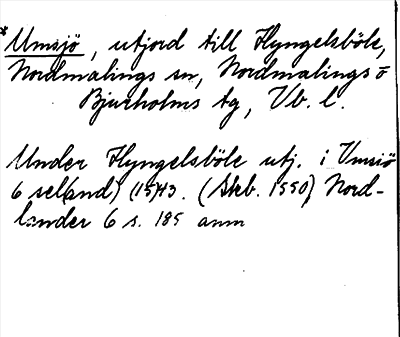 *Umsjö, utjord till Hyngelsböle,
Nordmalings sn, Nordmalings o
Bjurholms tg, Vb. l.
Under Hyngelsböle utj. i Umsiö
6 sel(and) (15)43. (Skb. 1550) Nord-
lander 6 s. 185 anm